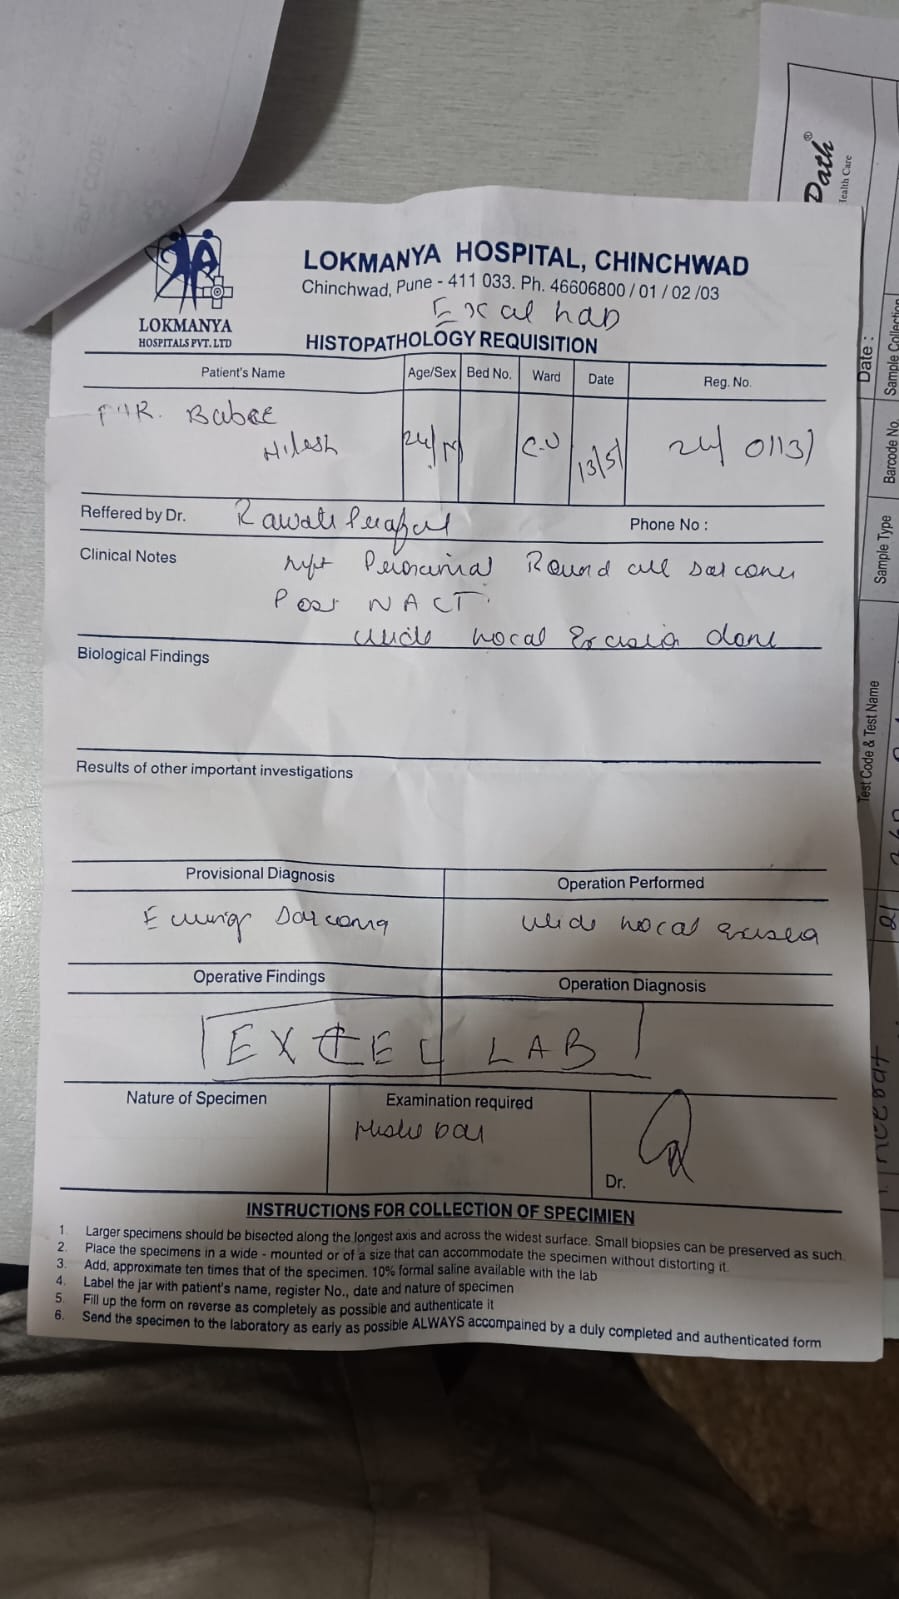 Path®
Health Care
LOKMANYA
HOSPITALS PVT. LTD
LOKMANYA HOSPITAL, CHINCHWAD
Chinchwad, Pune - 411 033. Ph. 46606800 / 01 / 02 /03
HISTOPATHOLOGY REQUISITION
Patient's Name Age/Sex Bed No. Ward Date Reg. No.
Nilesh 24/M 13/5/
Reffered by Dr. Phone No :
Clinical Notes Round cell sarcoma
Post NACT.
wide local Excision done
Biological Findings
Results of other important investigations
Provisional Diagnosis Operation Performed
Ewing Sarcoma wide local excision
Operative Findings Operation Diagnosis
EXCEL LAB
Nature of Specimen Examination required
Dr.
INSTRUCTIONS FOR COLLECTION OF SPECIMIEN
1. Larger specimens should be bisected along the longest axis and across the widest surface. Small biopsies can be preserved as such.
2. Place the specimens in a wide - mounted or of a size that can accommodate the specimen without distorting it.
3. Add, approximate ten times that of the specimen. 10% formal saline available with the lab
4. Label the jar with patient's name, register No., date and nature of specimen
5. Fill up the form on reverse as completely as possible and authenticate it
6. Send the specimen to the laboratory as early as possible ALWAYS accompained by a duly completed and authenticated form
Date :
Sample Collection
Barcode No.
Sample Type
Test Code & Test Name